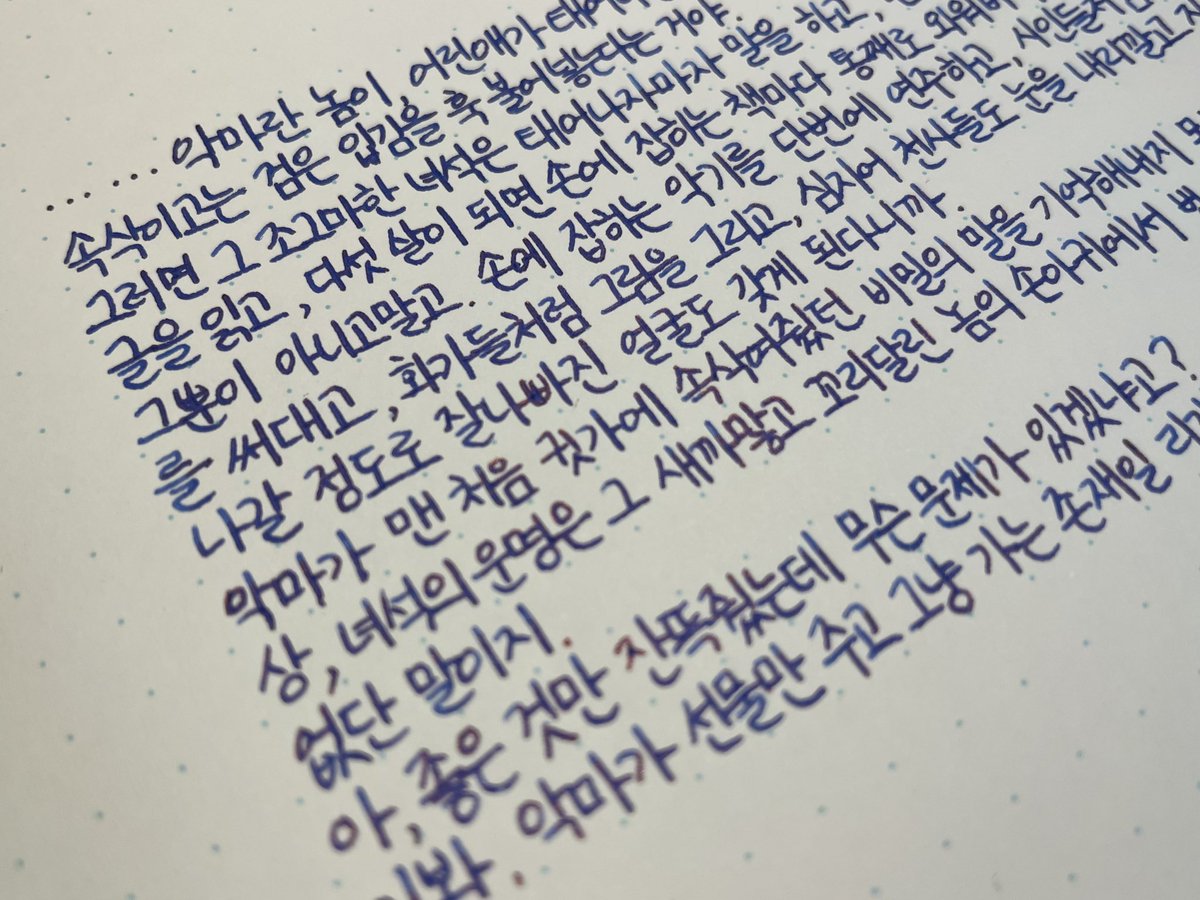 ...... 악마란 놈이, 어린애가 태어
속삭이고는 검은 입김을 훅 불어넣는다는 거야.
그러면 그 조그마한 녀석은 태어나자마자 말을 하고,
글을 읽고, 다섯 살이 되면 손에 잡히는 책마다 통째로 외워
그뿐이 아니고말고. 손에 잡히는 악기를 단번에 연주하고, 시인들처럼
를 써대고, 화가들처럼 그림을 그리고, 심지어 천사들도 눈을 내리깔고
나갈 정도로 잘나빠진 얼굴도 갖게 된다니까.
악마가 맨 처음 귓가에 속삭여줬던 비밀의 말을 기억해내지
상, 녀석의 운명은 그 새까맣고 꼬리달린 놈의 손아귀에서
없단 말이지.
아, 좋은 것만 잔뜩줬는데 무슨 문제가 있겠냐고?
악마가 선물만 주고 그냥 가는 존재일